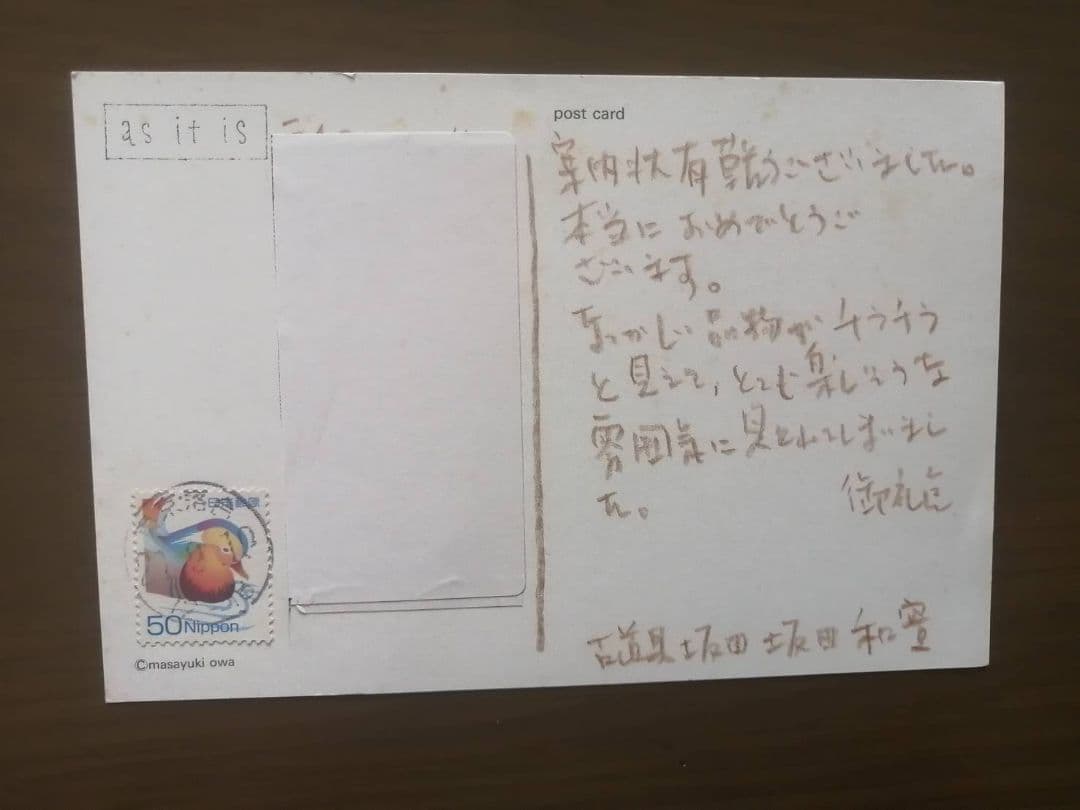 as it is
post card
案内状有難うございました。
本当におめでとうご
ざいます。
なつかしい品物がチラチラ
と見えて、とても楽しそうな
雰囲気に見とれてしまいまし
た。 御礼迄
古道具坂田 坂田和實
日本郵便
50 Nippon
©masayuki owa